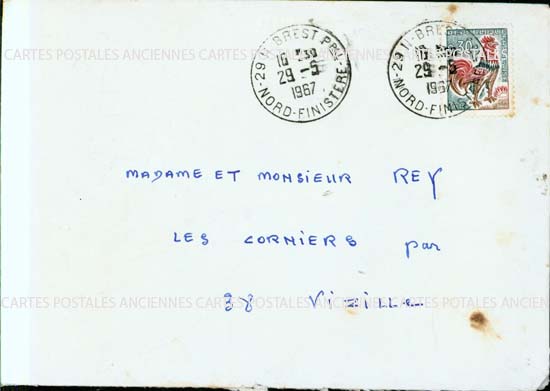 29 N. BREST PPAL
16H30
29-5
1967
NORD-FINISTERE
29 N. BREST
29-5
1967
NORD-FINIS
0,30
CARTES POSTALES ANCIENNES CARTES POSTALES ANCIENNES CARTES POSTALES ANCIENNES
MADAME ET MONSIEUR REY
LES CORNIERS par
38 VIZILLE
CARTES POSTALES ANCIENNES CARTES POSTALES ANCIENNES CARTES POSTALES ANCIENNES